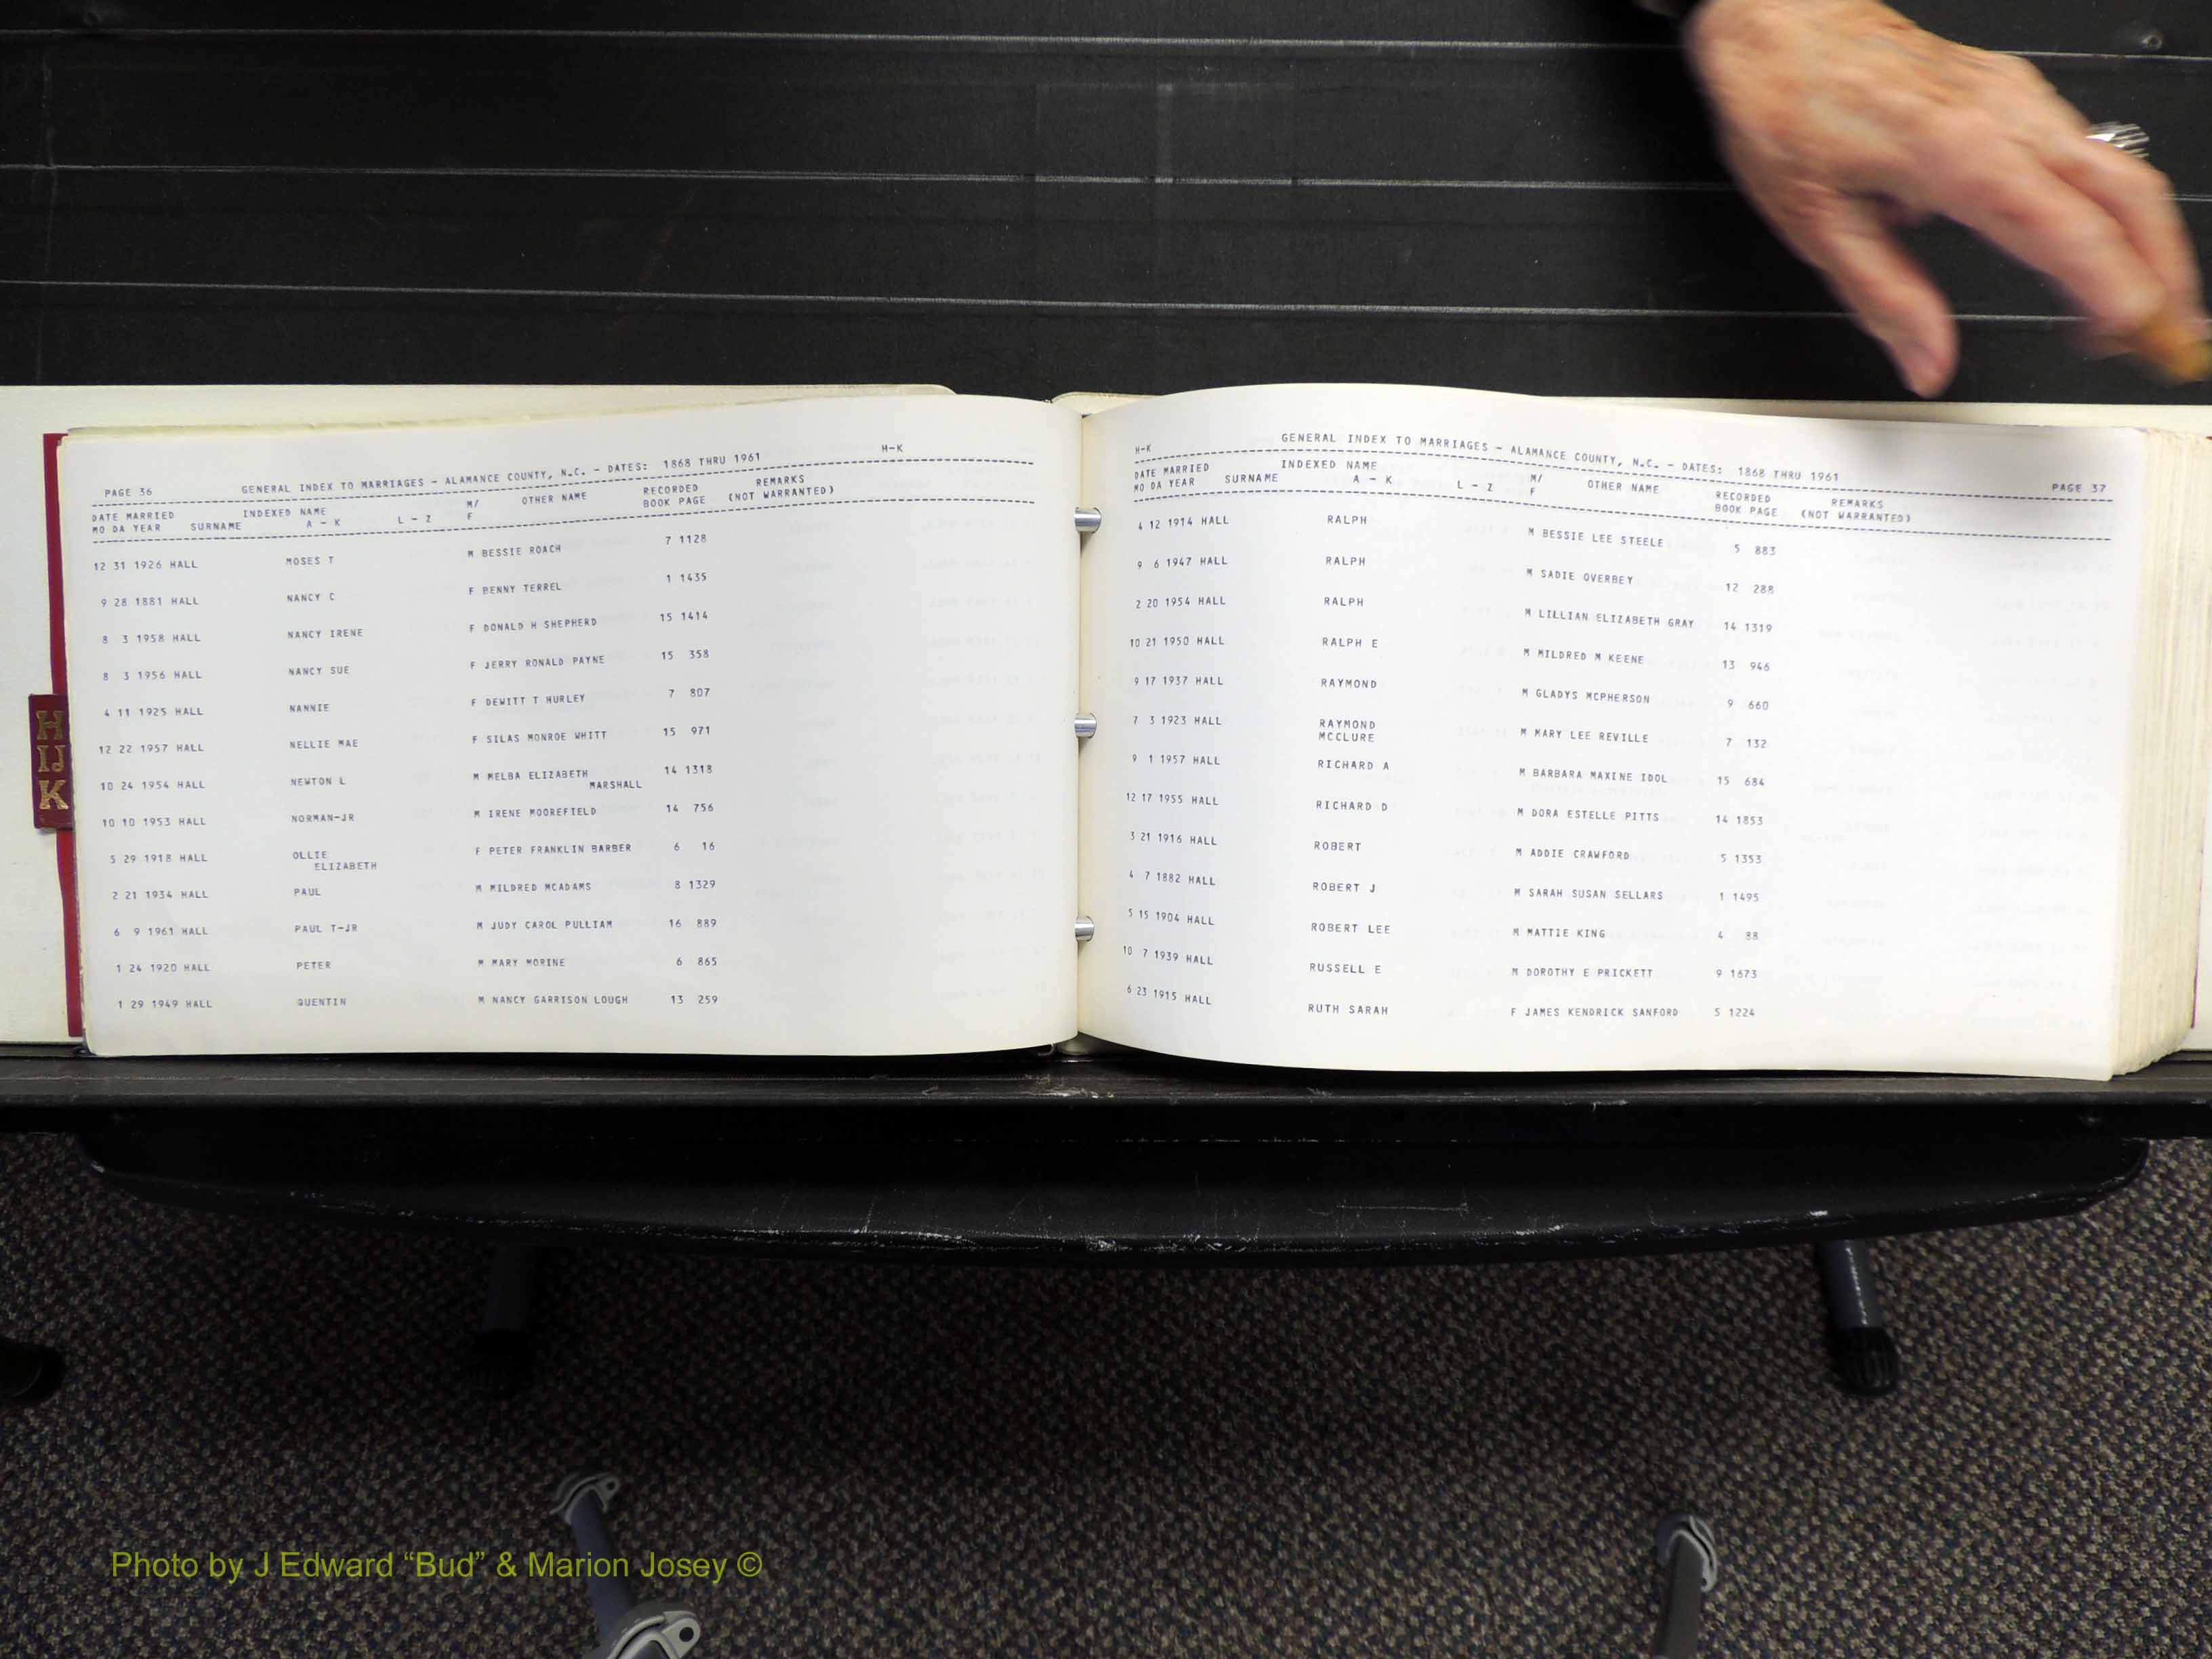 H
IJ
K
PAGE 36 GENERAL INDEX TO MARRIAGES - ALAMANCE COUNTY, N.C. - DATES: 1868 THRU 1961 H-K
DATE MARRIED INDEXED NAME M/ OTHER NAME RECORDED REMARKS
MO DA YEAR SURNAME A - K L - Z F BOOK PAGE (NOT WARRANTED)
12 31 1926 HALL MOSES T M BESSIE ROACH 7 1128
9 28 1881 HALL NANCY C F BENNY TERREL 1 1435
8 3 1958 HALL NANCY IRENE F DONALD H SHEPHERD 15 1414
8 3 1956 HALL NANCY SUE F JERRY RONALD PAYNE 15 358
4 11 1925 HALL NANNIE F DEWITT T HURLEY 7 807
12 22 1957 HALL NELLIE MAE F SILAS MONROE WHITT 15 971
10 24 1954 HALL NEWTON L M MELBA ELIZABETH 14 1318
MARSHALL
10 10 1953 HALL NORMAN-JR M IRENE MOOREFIELD 14 756
5 29 1918 HALL OLLIE F PETER FRANKLIN BARBER 6 16
ELIZABETH
2 21 1934 HALL PAUL M MILDRED MCADAMS 8 1329
6 9 1961 HALL PAUL T-JR M JUDY CAROL PULLIAM 16 889
1 24 1920 HALL PETER M MARY MORINE 6 865
1 29 1949 HALL QUENTIN M NANCY GARRISON LOUGH 13 259
H-K GENERAL INDEX TO MARRIAGES - ALAMANCE COUNTY, N.C. - DATES: 1868 THRU 1961 PAGE 37
DATE MARRIED INDEXED NAME M/ OTHER NAME RECORDED REMARKS
MO DA YEAR SURNAME A - K L - Z F BOOK PAGE (NOT WARRANTED)
4 12 1914 HALL RALPH M BESSIE LEE STEELE 5 883
9 6 1947 HALL RALPH M SADIE OVERBEY 12 288
2 20 1954 HALL RALPH M LILLIAN ELIZABETH GRAY 14 1319
10 21 1950 HALL RALPH E M MILDRED M KEENE 13 946
9 17 1937 HALL RAYMOND M GLADYS MCPHERSON 9 660
7 3 1923 HALL RAYMOND M MARY LEE REVILLE 7 132
MCCLURE
9 1 1957 HALL RICHARD A M BARBARA MAXINE IDOL 15 684
12 17 1955 HALL RICHARD D M DORA ESTELLE PITTS 14 1853
3 21 1916 HALL ROBERT M ADDIE CRAWFORD 5 1353
4 7 1882 HALL ROBERT J M SARAH SUSAN SELLARS 1 1495
5 15 1904 HALL ROBERT LEE M MATTIE KING 4 88
10 7 1939 HALL RUSSELL E M DOROTHY E PRICKETT 9 1673
6 23 1915 HALL RUTH SARAH F JAMES KENDRICK SANFORD 5 1224
Photo by J Edward “Bud” & Marion Josey ©